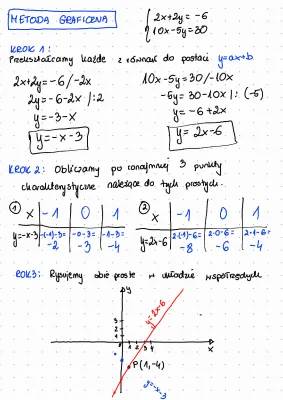 METODA GRAFICZNA
{ 2x+2y = -6
10x-5y=30
KROK 1:
Przekształcamy każde z równań do postaci y=ax+b
2x+2y=-6/-2x
2y=-6-2x /:2
y=-3-x
y=-x-3
10x-5y=30/-10x
-5y=30-10x /: (-5)
y=-6+2x
y= 2x-6
KROK 2: Obliczamy po conajmniej 3 punkty
charakterystyczne należące do tych prostych.
1 x -1 0 1
y=-x-3 -(-1)-3= -0-3= -1-3=
-2 -3 -4
2 x -1 0 1
y=2x-6 2·(-1)-6= 2·0-6= 2·1-6=
-8 -6 -4
KROK 3: Rysujemy obie proste w układzie współrzędnych
y
y=2x-6
3
2
1
1 2 3 4
x
P(1,-4)
y=-x-3